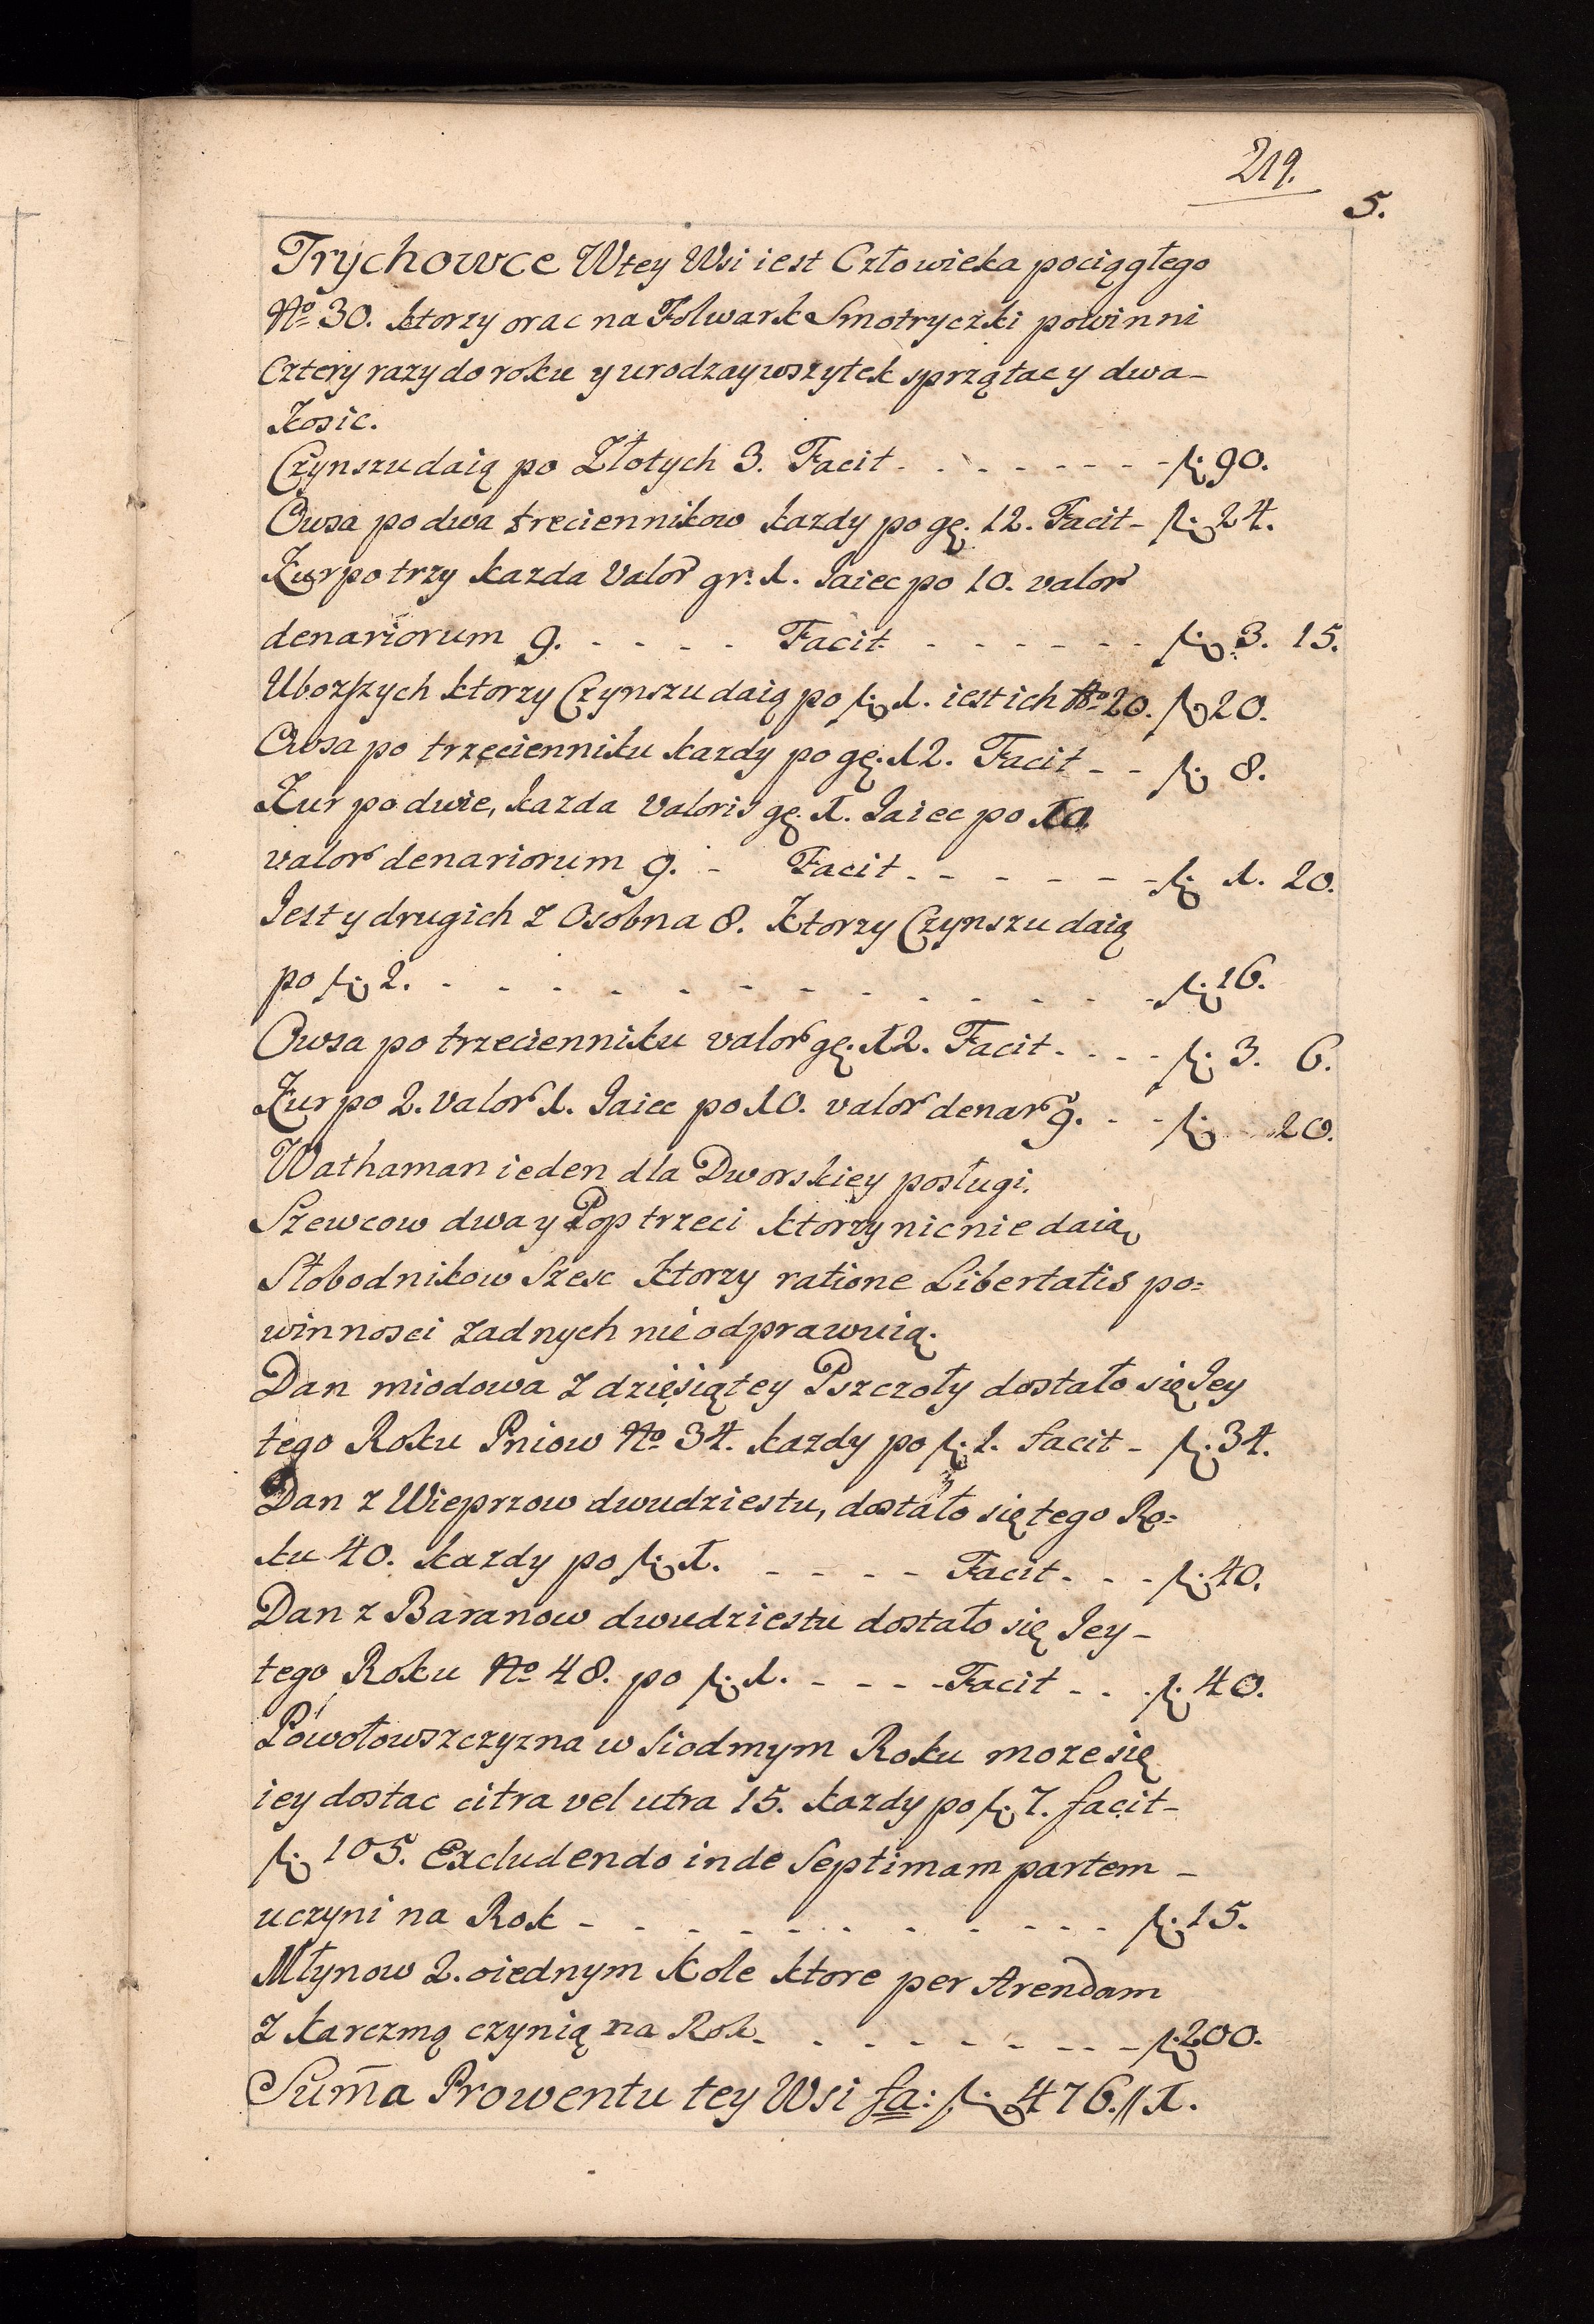 219.
5.
Trychowce W tey Wsi iest Człowieka pociągłego
No 30. ktorzy orac na Folwark Smotryczki powinni
Cztery razy do roku y urodzay wszytek sprzątac y dwa-
kosic.
Czynszu daią po Złotych 3. Facit - - - - - - - - fl: 90.
Owsa po dwa treciennikow kazdy po gr. 12. Facit - fl: 24.
Kur po trzy kazda Valor gr. 1. Jaiec po 10. valor
denariorum 9. - - - - Facit - - - - - - fl: 3. 15.
Ubozszych ktorzy Czynszu daią po fl: 1. iest ich No 20. fl: 20.
Owsa po trzecienniku kazdy po gr. 12. Facit - - fl: 8.
Kur po dwie, kazda Valoris gr. 1. Jaiec po 10
valor denariorum 9. - Facit - - - - - - fl: 1. 20.
Jest y drugich z Osobna 8. Ktorzy Czynszu daią
po fl: 2. - - - - - - - - - - - - - fl: 16.
Owsa po trzecienniku valor gr. 12. Facit - - - - fl: 3. 6.
Kur po 2. valor 1. Jaiec po 10. valor denar 9. - - fl: 20.
Wathaman ieden dla Dworskiey posługi.
Szewcow dwa y Pop trzeci ktorzy nic nie daią
Słobodnikow Szesc Ktorzy ratione Libertatis po=
winnosci zadnych nie odprawuią.
Dan miodowa z dzięsiątey Pszczoły dostało się Jey
tego Roku Pniow No 34. kazdy po fl: 1. facit - fl: 34.
Dan z Wieprzow dwudziestu, dostało się tego Ro=
ku 40. kazdy po fl: 1. - - - - Facit - - - fl: 40.
Dan z Baranow dwudziestu dostało się Jey -
tego Roku No 48. po fl: 1. - - - - Facit - - fl: 40.
Powołowszczyzna w Siodmym Roku moze się
iey dostac citra vel utra 15. kazdy po fl: 7. facit -
fl: 105. Excludendo inde Septimam partem -
uczyni na Rok - - - - - - - - - - fl: 15.
Młynow 2. o iednym Kole ktore per Arendam
z karczmą czynią na Rok - - - - - - - - fl: 200.
Sum̃a Prowentu tey Wsi fa: fl: 476.//1.